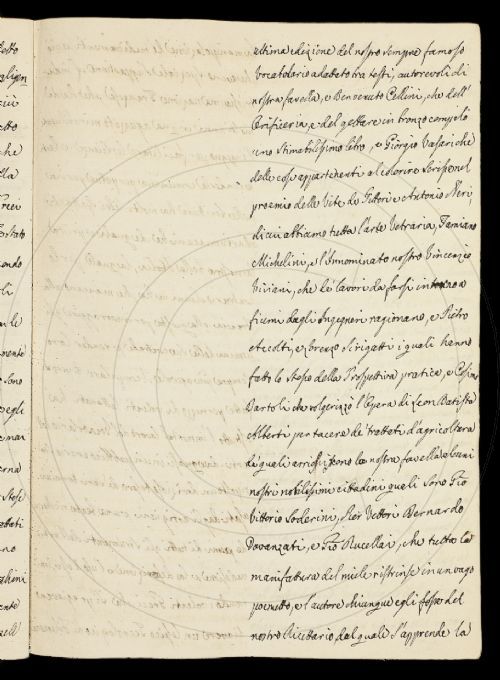 ultima edizione del nostro sempre famoso
Vocabolario adottato tra testi, autorevoli di
nostra favella, e Benvenuto Cellini, che dell'
Orificieria, e del gettare in bronzo compilò
uno stimabilissimo libro, e Giorgio Vasari che
delle cose appartenenti al colorire scrisse nel
proemio delle Vite de Pittori e Antonio Neri,
di cui abbiamo tutta l'arte Vetraria, Famiano
Michelini, e l'Innominato nostro Vincenzio
Viviani, che de' lavori da farsi intorno a
fiumi dagli Ingegneri ragionano, e Pietro
Accolti, e Lorenzo Sirigatti i quali hanno
fatto lo stesso della Prospettiva pratica, e Cosimo
Bartoli che volgarizzò l'Opera di Leon Batista
Alberti per tacere de' trattati d'agricoltura
de' quali arricchirono la nostra favella alcuni
nostri nobilissimi cittadini quali sono Gio
Vittorio Soderini, Pier Vettori Bernardo
Davanzati, e Gio Rucellai, che tutta la
manifattura del miele ristrinse in un vago
poemetto, e l'autore chiunque egli fosse del
nostro Ricettario dal quale s'apprende la